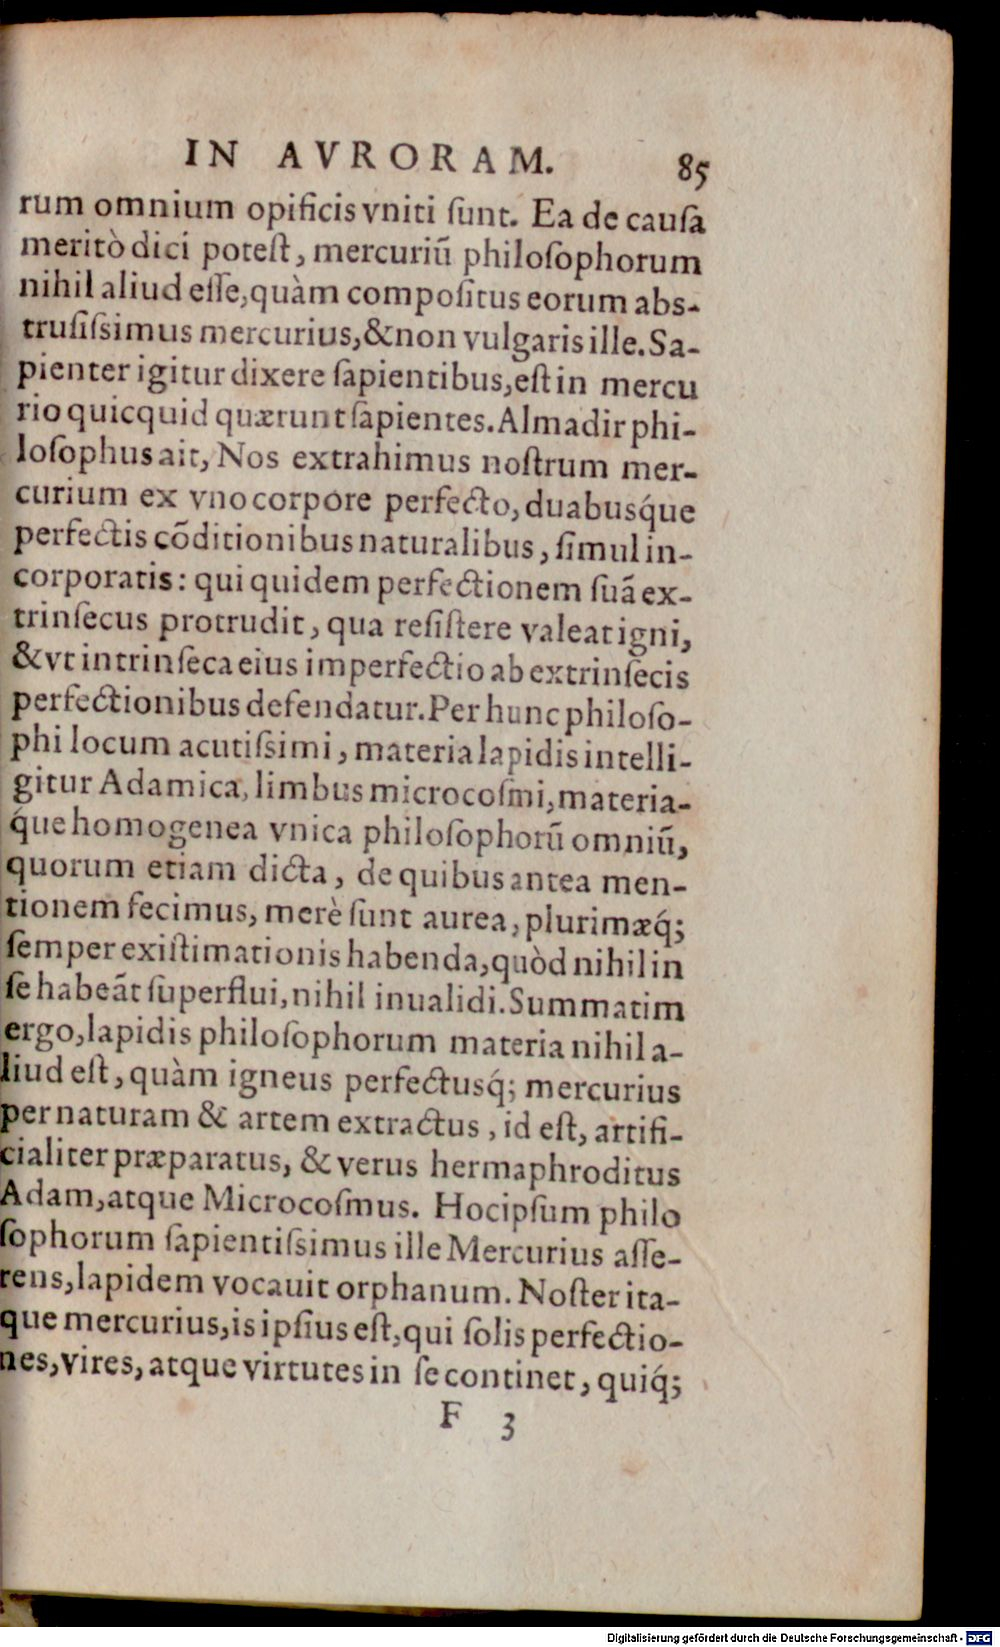 IN AVRORAM. 85
rum omnium opificis vniti ſunt. Ea de cauſa
meritò dici poteſt, mercuriū philoſophorum
nihil aliud eſſe, quàm compoſitus eorum abs-
truſiſsimus mercurius, & non vulgaris ille. Sa-
pienter igitur dixere ſapientibus, eſt in mercu
rio quicquid quærunt ſapientes. Almadir phi-
loſophus ait, Nos extrahimus noſtrum mer-
curium ex vno corpore perfecto, duabusq́ue
perfectis cōditionibus naturalibus, ſimul in-
corporatis: qui quidem perfectionem ſuā ex-
trinſecus protrudit, qua reſiſtere valeat igni,
& vt intrinſeca eius imperfectio ab extrinſecis
perfectionibus defendatur. Per hunc philoſo-
phi locum acutiſsimi, materia lapidis intelli-
gitur Adamica, limbus microcoſmi, materia-
q́ue homogenea vnica philoſophorū omniū,
quorum etiam dicta, de quibus antea men-
tionem fecimus, merè ſunt aurea, plurimæq́;
ſemper exiſtimationis habenda, quòd nihil in
ſe habeāt ſuperflui, nihil inualidi. Summatim
ergo, lapidis philoſophorum materia nihil a-
liud eſt, quàm igneus perfectusq́; mercurius
per naturam & artem extractus, id eſt, artifi-
cialiter præparatus, & verus hermaphroditus
Adam, atque Microcoſmus. Hoc ipſum philo
ſophorum ſapientiſsimus ille Mercurius aſſe-
rens, lapidem vocauit orphanum. Noſter ita-
que mercurius, is ipſius eſt, qui ſolis perfectio-
nes, vires, atque virtutes in ſe continet, quiq́;
F 3
Digitalisierung gefördert durch die Deutsche Forschungsgemeinschaft - DFG